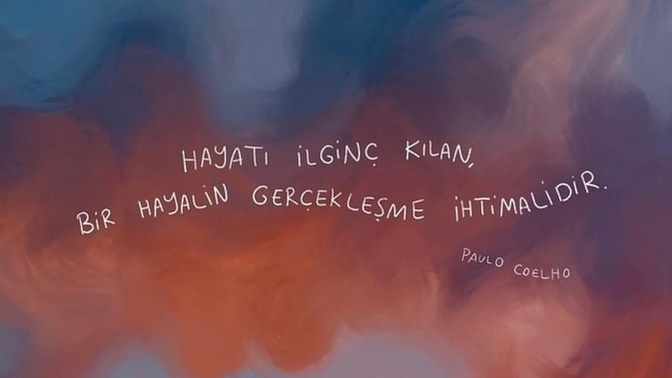 HAYATI İLGİNÇ KILAN,
BİR HAYALİN GERÇEKLEŞME İHTİMALİDİR.
PAULO COELHO